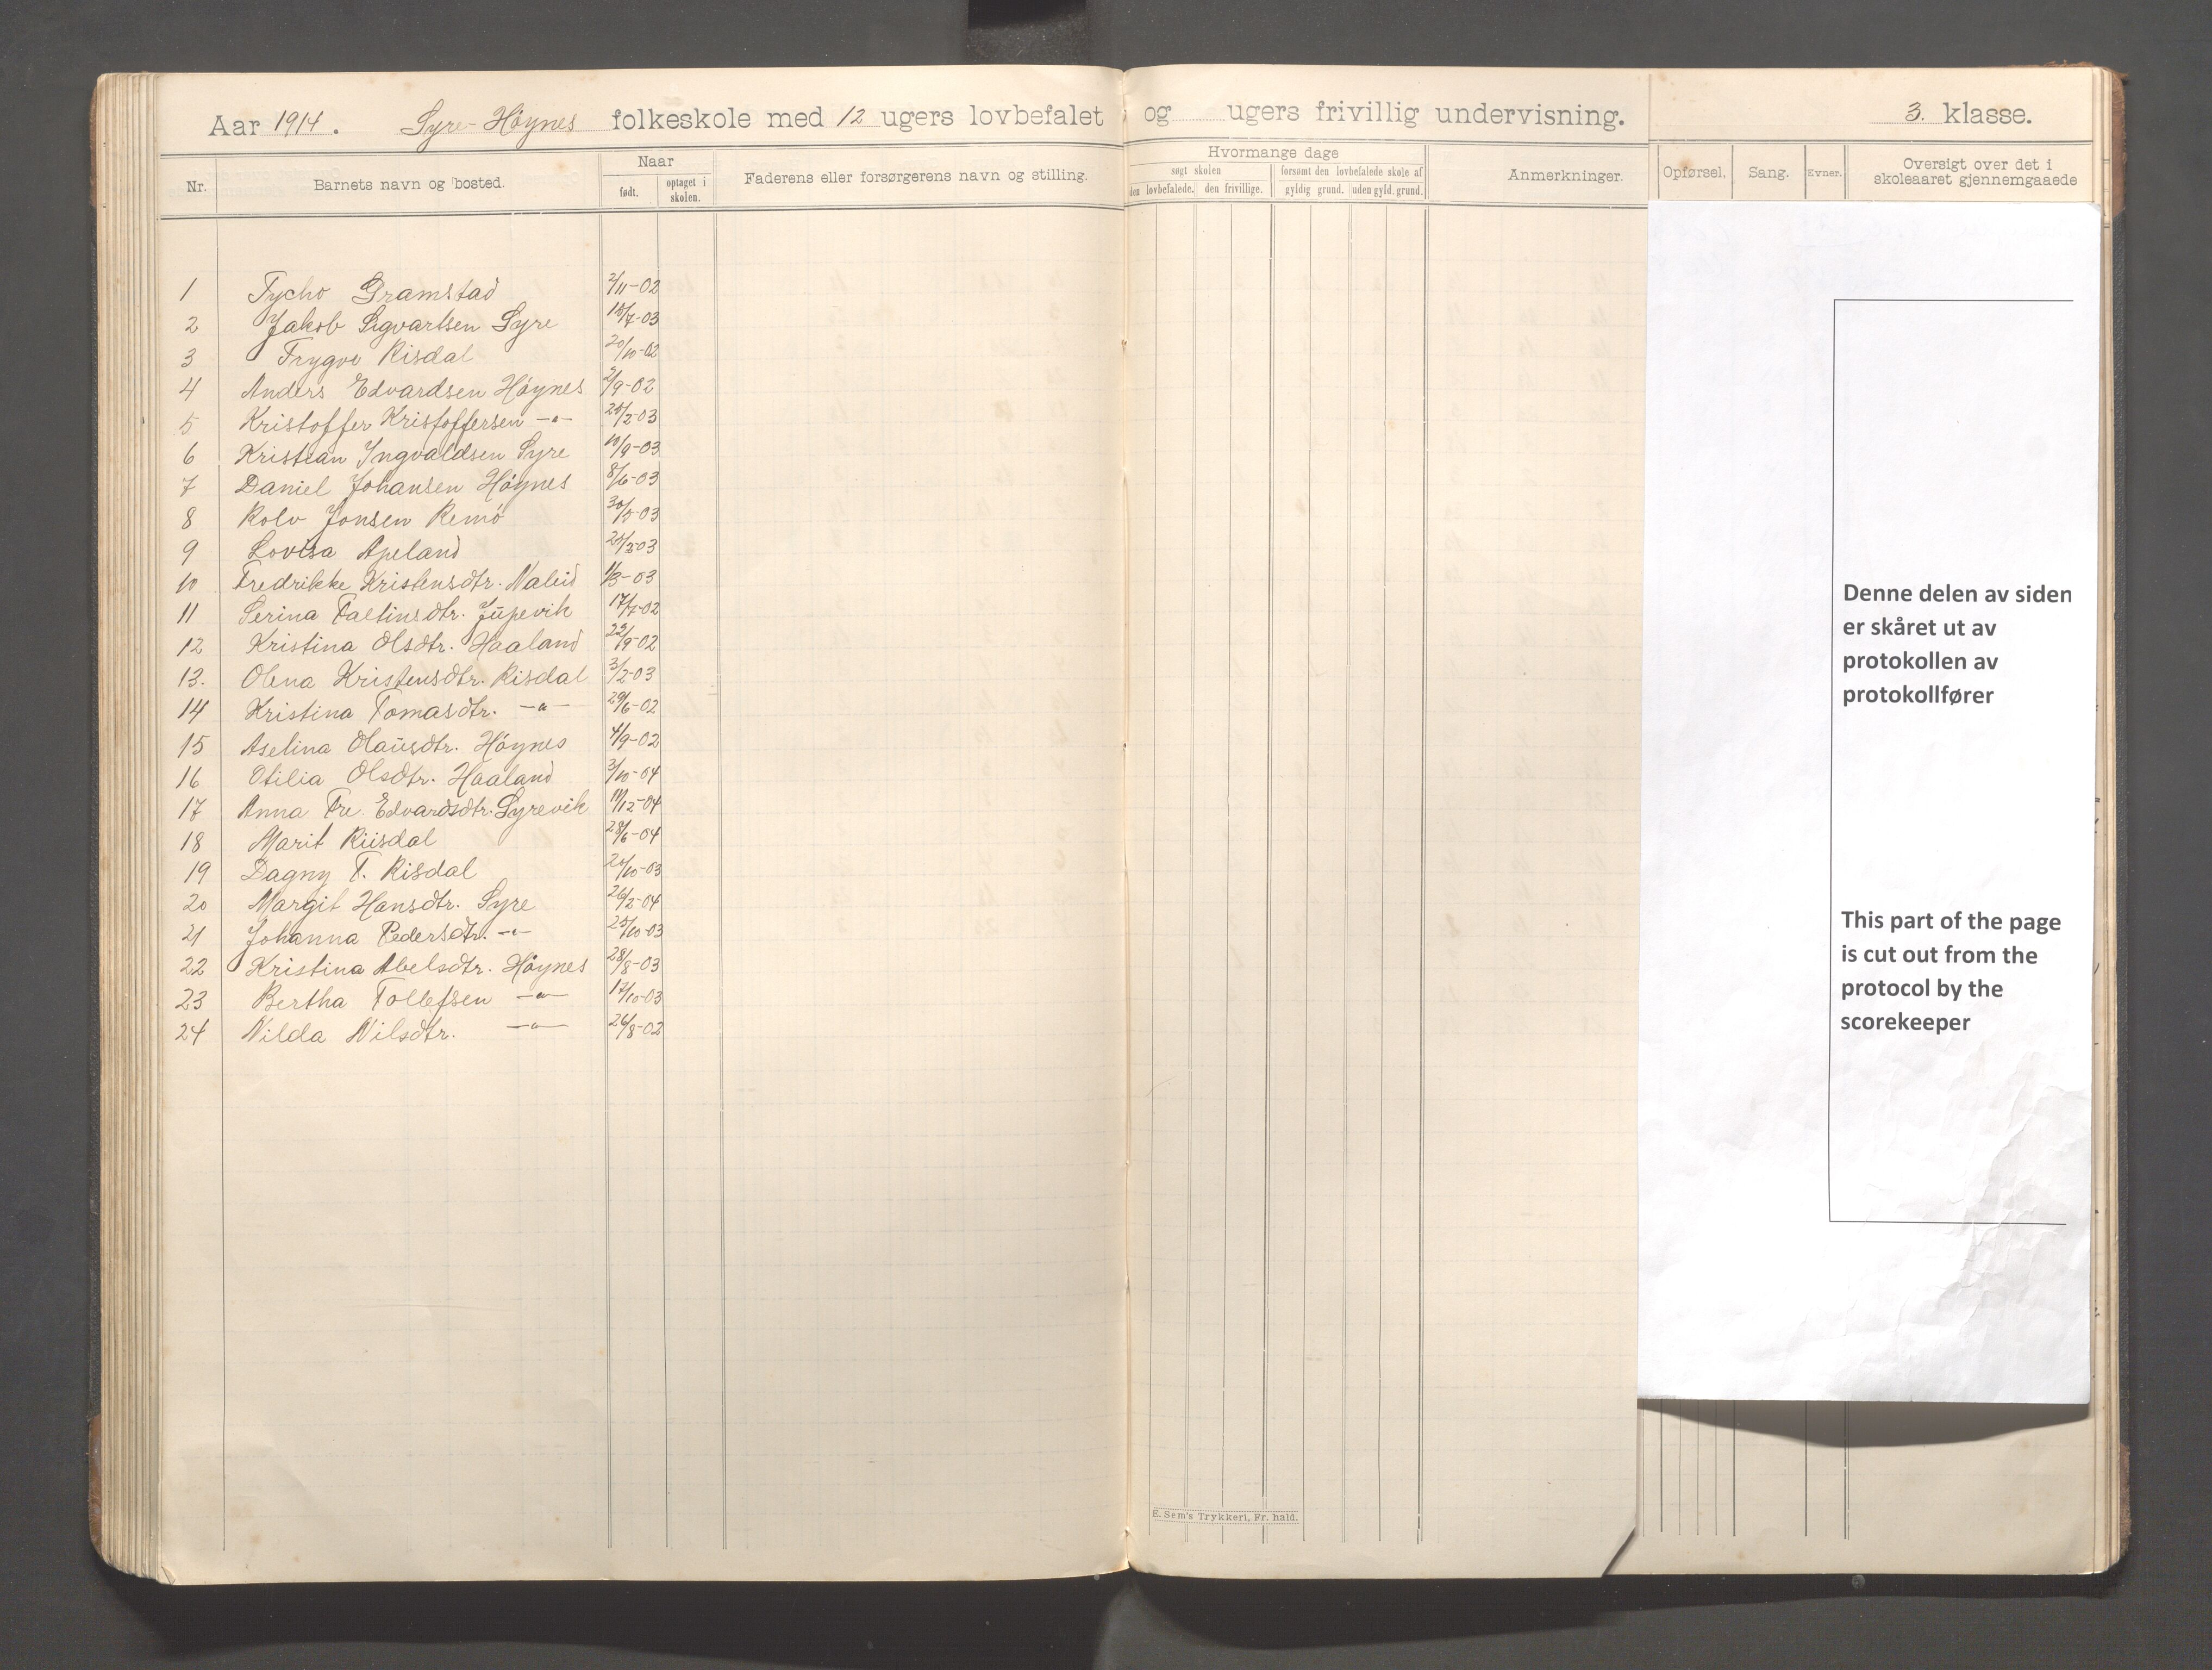 Aar 1914. Syre-Höynes folkeskole med 12 ugers lovbefalet og ugers frivillig undervisning. 3. klasse.
Nr. Barnets navn og bosted. Naar født. optaget i skolen. Faderens eller forsørgerens navn og stilling. Hvormange dage søgt skolen den lovbefalede. den frivillige. forsømt den lovbefalede skole af gyldig grund. uden gyld. grund. Anmerkninger. Opførsel. Sang. Evner. Oversigt over det i skoleaaret gjennemgaaede
1 Tycho Gramstad 2/11-02
2 Jakob Sigvartsen Syre 18/7-03
3 Trygve Risdal 20/10-02
4 Anders Edvardsen Höynes 2/9-02
5 Kristoffer Kristoffersen -"- 25/2-03
6 Kristian Ingvaldsen Syre 10/9-03
7 Daniel Johansen Höynes 8/6-03
8 Rolv Jonsen Remö 30/5-03
9 Lovisa Apeland
10 Fredrikke Kristensdtr. Naleid 1/3-03
11 Serina Faltinsdtr. Jupevik
12 Kristina Olsdtr. Haaland 22/9-02
13. Olena Kristensdtr. Risdal 3/2-03
14 Kristina Tomasdtr. -"- 29/6-02
15 Aselina Olausdtr. Höynes 4/9-02
16 Otilia Olsdtr. Haaland 3/10-04
17 Anna Fre. Edvardsdtr. Syrevik 11/12-04
18 Marit Riisdal 28/6-04
19 Dagny T. Risdal
20 Margit Hansdtr. Syre 26/2-04
21 Johanna Pedersdtr. -"- 25/10-03
22 Kristina Abelsdtr. Höynes 28/8-03
23 Bertha Tollefsen -"- 17/10-03
24 Nilda Nilsdtr. -"- 26/8-02
E. Sem's Trykkeri, Fr. hald.
Denne delen av siden
er skåret ut av
protokollen av
protokollfører
This part of the page
is cut out from the
protocol by the
scorekeeper